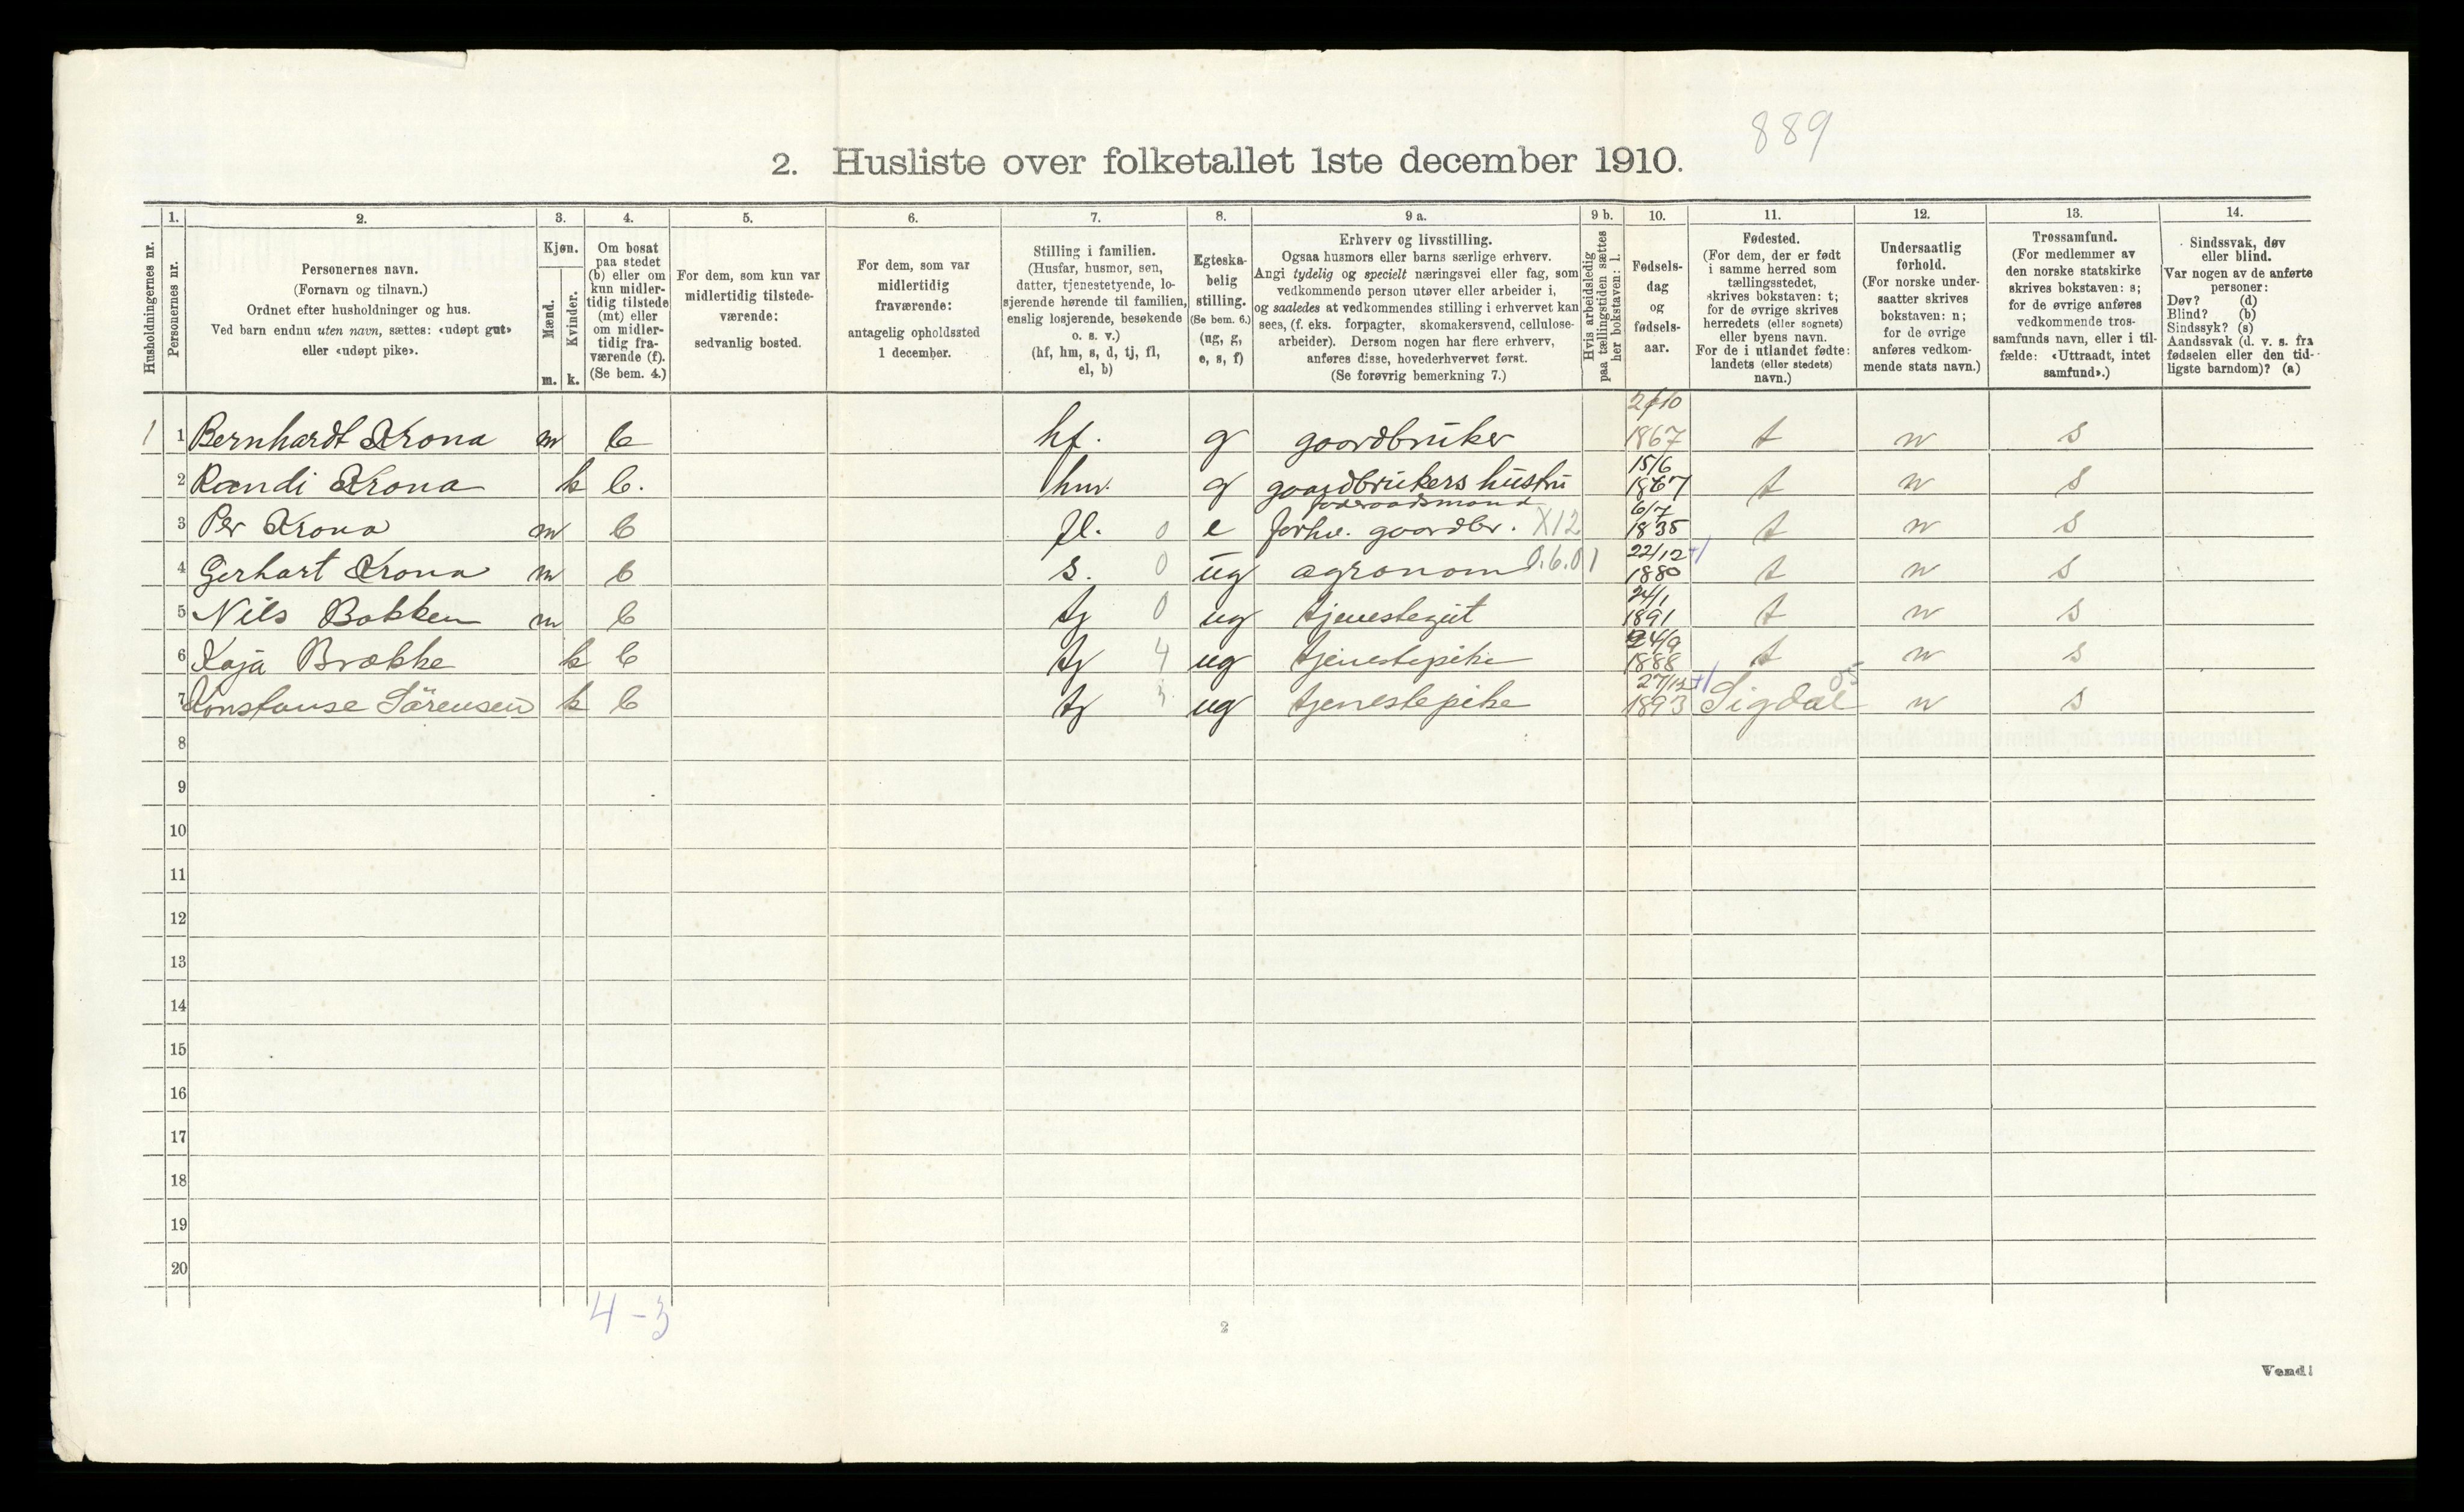 889
2. Husliste over folketallet 1ste december 1910.
1. 2. 3. 4. 5. 6. 7. 8. 9 a. 9 b. 10. 11. 12. 13. 14.
Husholdningernes nr.
Personernes nr.
Personernes navn.
(Fornavn og tilnavn.)
Ordnet efter husholdninger og hus.
Ved barn endnu uten navn, sættes: «udøpt gut»
eller «udøpt pike».
Kjøn.
Mænd.
m.
Kvinder.
k.
Om bosat
paa stedet
(b) eller om
kun midler-
tidig tilstede
(mt) eller
om midler-
tidig fra-
værende (f).
(Se bem. 4.)
For dem, som kun var
midlertidig tilstede-
værende:
sedvanlig bosted.
For dem, som var
midlertidig
fraværende:
antagelig opholdssted
1 december.
Stilling i familien.
(Husfar, husmor, søn,
datter, tjenestetyende, lo-
sjerende hørende til familien,
enslig losjerende, besøkende
o. s. v.)
(hf, hm, s, d, tj, fl,
el, b)
Egteska-
belig
stilling.
(Se bem. 6.)
(ug, g,
e, s, f)
Erhverv og livsstilling.
Ogsaa husmors eller barns særlige erhverv.
Angi tydelig og specielt næringsvei eller fag, som
vedkommende person utøver eller arbeider i,
og saaledes at vedkommendes stilling i erhvervet kan
sees, (f. eks. forpagter, skomakersvend, cellulose-
arbeider). Dersom nogen har flere erhverv,
anføres disse, hovederhvervet først.
(Se forøvrig bemerkning 7.)
Hvis arbeidsledig
paa tællingstiden sættes
her bokstaven: l.
Fødsels-
dag
og
fødsels-
aar.
Fødested.
(For dem, der er født
i samme herred som
tællingsstedet,
skrives bokstaven: t;
for de øvrige skrives
herredets (eller sognets)
eller byens navn.
For de i utlandet fødte:
landets (eller stedets)
navn.)
Undersaatlig
forhold.
(For norske under-
saatter skrives
bokstaven: n;
for de øvrige
anføres vedkom-
mende stats navn.)
Trossamfund.
(For medlemmer av
den norske statskirke
skrives bokstaven: s;
for de øvrige anføres
vedkommende tros-
samfunds navn, eller i til-
fælde: «Uttraadt, intet
samfund».)
Sindssvak, døv
eller blind.
Var nogen av de anførte
personer:
Døv? (d)
Blind? (b)
Sindssyk? (s)
Aandssvak (d. v. s. fra
fødselen eller den tid-
ligste barndom)? (a)
1 1 Bernhardt Krona m b hf. g gaardbruker 1867 t n s
2 Randi Krona k b. hm. g gaardbrukers hustru 15/6 1867 t n s
foderaadsmand
3 Per Krona m b fl. 0 e forhv. gaardbr. X12 6/7 1835 t n s
4 Gerhart Krona m b s. 0 ug agronom 0.6.01 22/12 1880 t n s
5 Nils Bakken m b tj 0 ug tjenestegut 24/1 1891 t n s
6 Kaja Brække k b tj 4 ug tjenestepike 24/9 1888 t n s
7 Konstanse Sörensen k b tj 3 ug tjenestepike 27/12 1893 Sigdal n s
8
9
10
11
12
13
14
15
16
17
18
19
20
4-3
2
Vend!